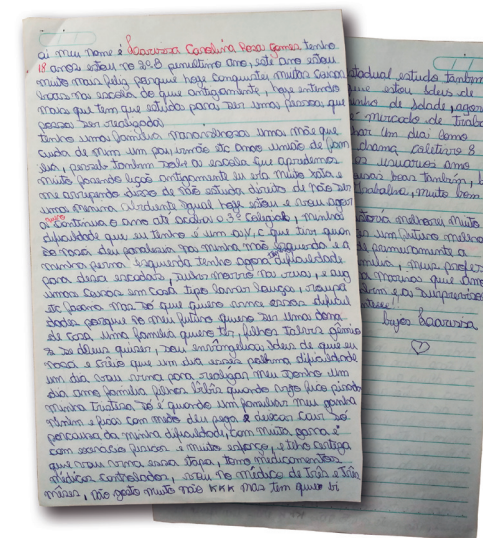 oi meu nome é Laarissa Carolina Rosa Gomes tenho
18 anos estou no 2º B penultimo ano, este ano estou
muito mais feliz porque hoje conquistei muitas coisas
boas na escola do que antigamente, hoje entendo
mais que tem que estuda para ser uma pessoa, que
possa ser realizada
tenho uma família maravilhosa uma mãe que
cuida de mim um pai irmão etc amo união de fam
lia, percebi tambem sobre as escola que aprendemos
muito fazendo lição antigamente eu era muito chata e
me arrependo disso de não estuda direito de não ser
uma menina obediente igual hoje estou e vou agora
continua o ano até acaba o 3º colegial, minha
dificuldade que eu tenho é um a.v.c que tive quan
do nasci deu paralesia na minha mão esquerda e a
minha perna esquerda tenho agora dificuldade
para desce escadas, subir morro na rua, e alg
umas coisas em casa tipo lavar louça, roupa
etc faço mas só que quero vence essas dificul
dades porque no meu futuro quero ser uma dona
de casa uma família quero ter, filhos talvez gêmio
s se deus quiser, sou evangelica deus de que eu
nasci e creio que um dia essas dificuldade
um dia vou vence para realizar meu sonho um
dia amo família filhos bebês quando vejo fico
minha tristeza só é quando um familiar meu ganha
nênem e ficar com medo deu pega e deixar cair só
por causa da minha dificuldade, com muita garra e
com exercicio fisicos e muito esforço, e tenho certeza
que vou vence essa etapa, tomo medicamentos
médicos controlados, vou no médico de três e três
meses, não gosto muito não kkk mas tem que ir
stadual estudo tambem
que estou deus de
inho de idade, agora
é mercado de traba
har um dia como
chama coletivo 8
os usuarios amo
boas também,
trabalha, muito bem
melhorei muito
um futuro melhor
permanente a
ília, meus profes
maravilhosos que amo
bejos Laarissa